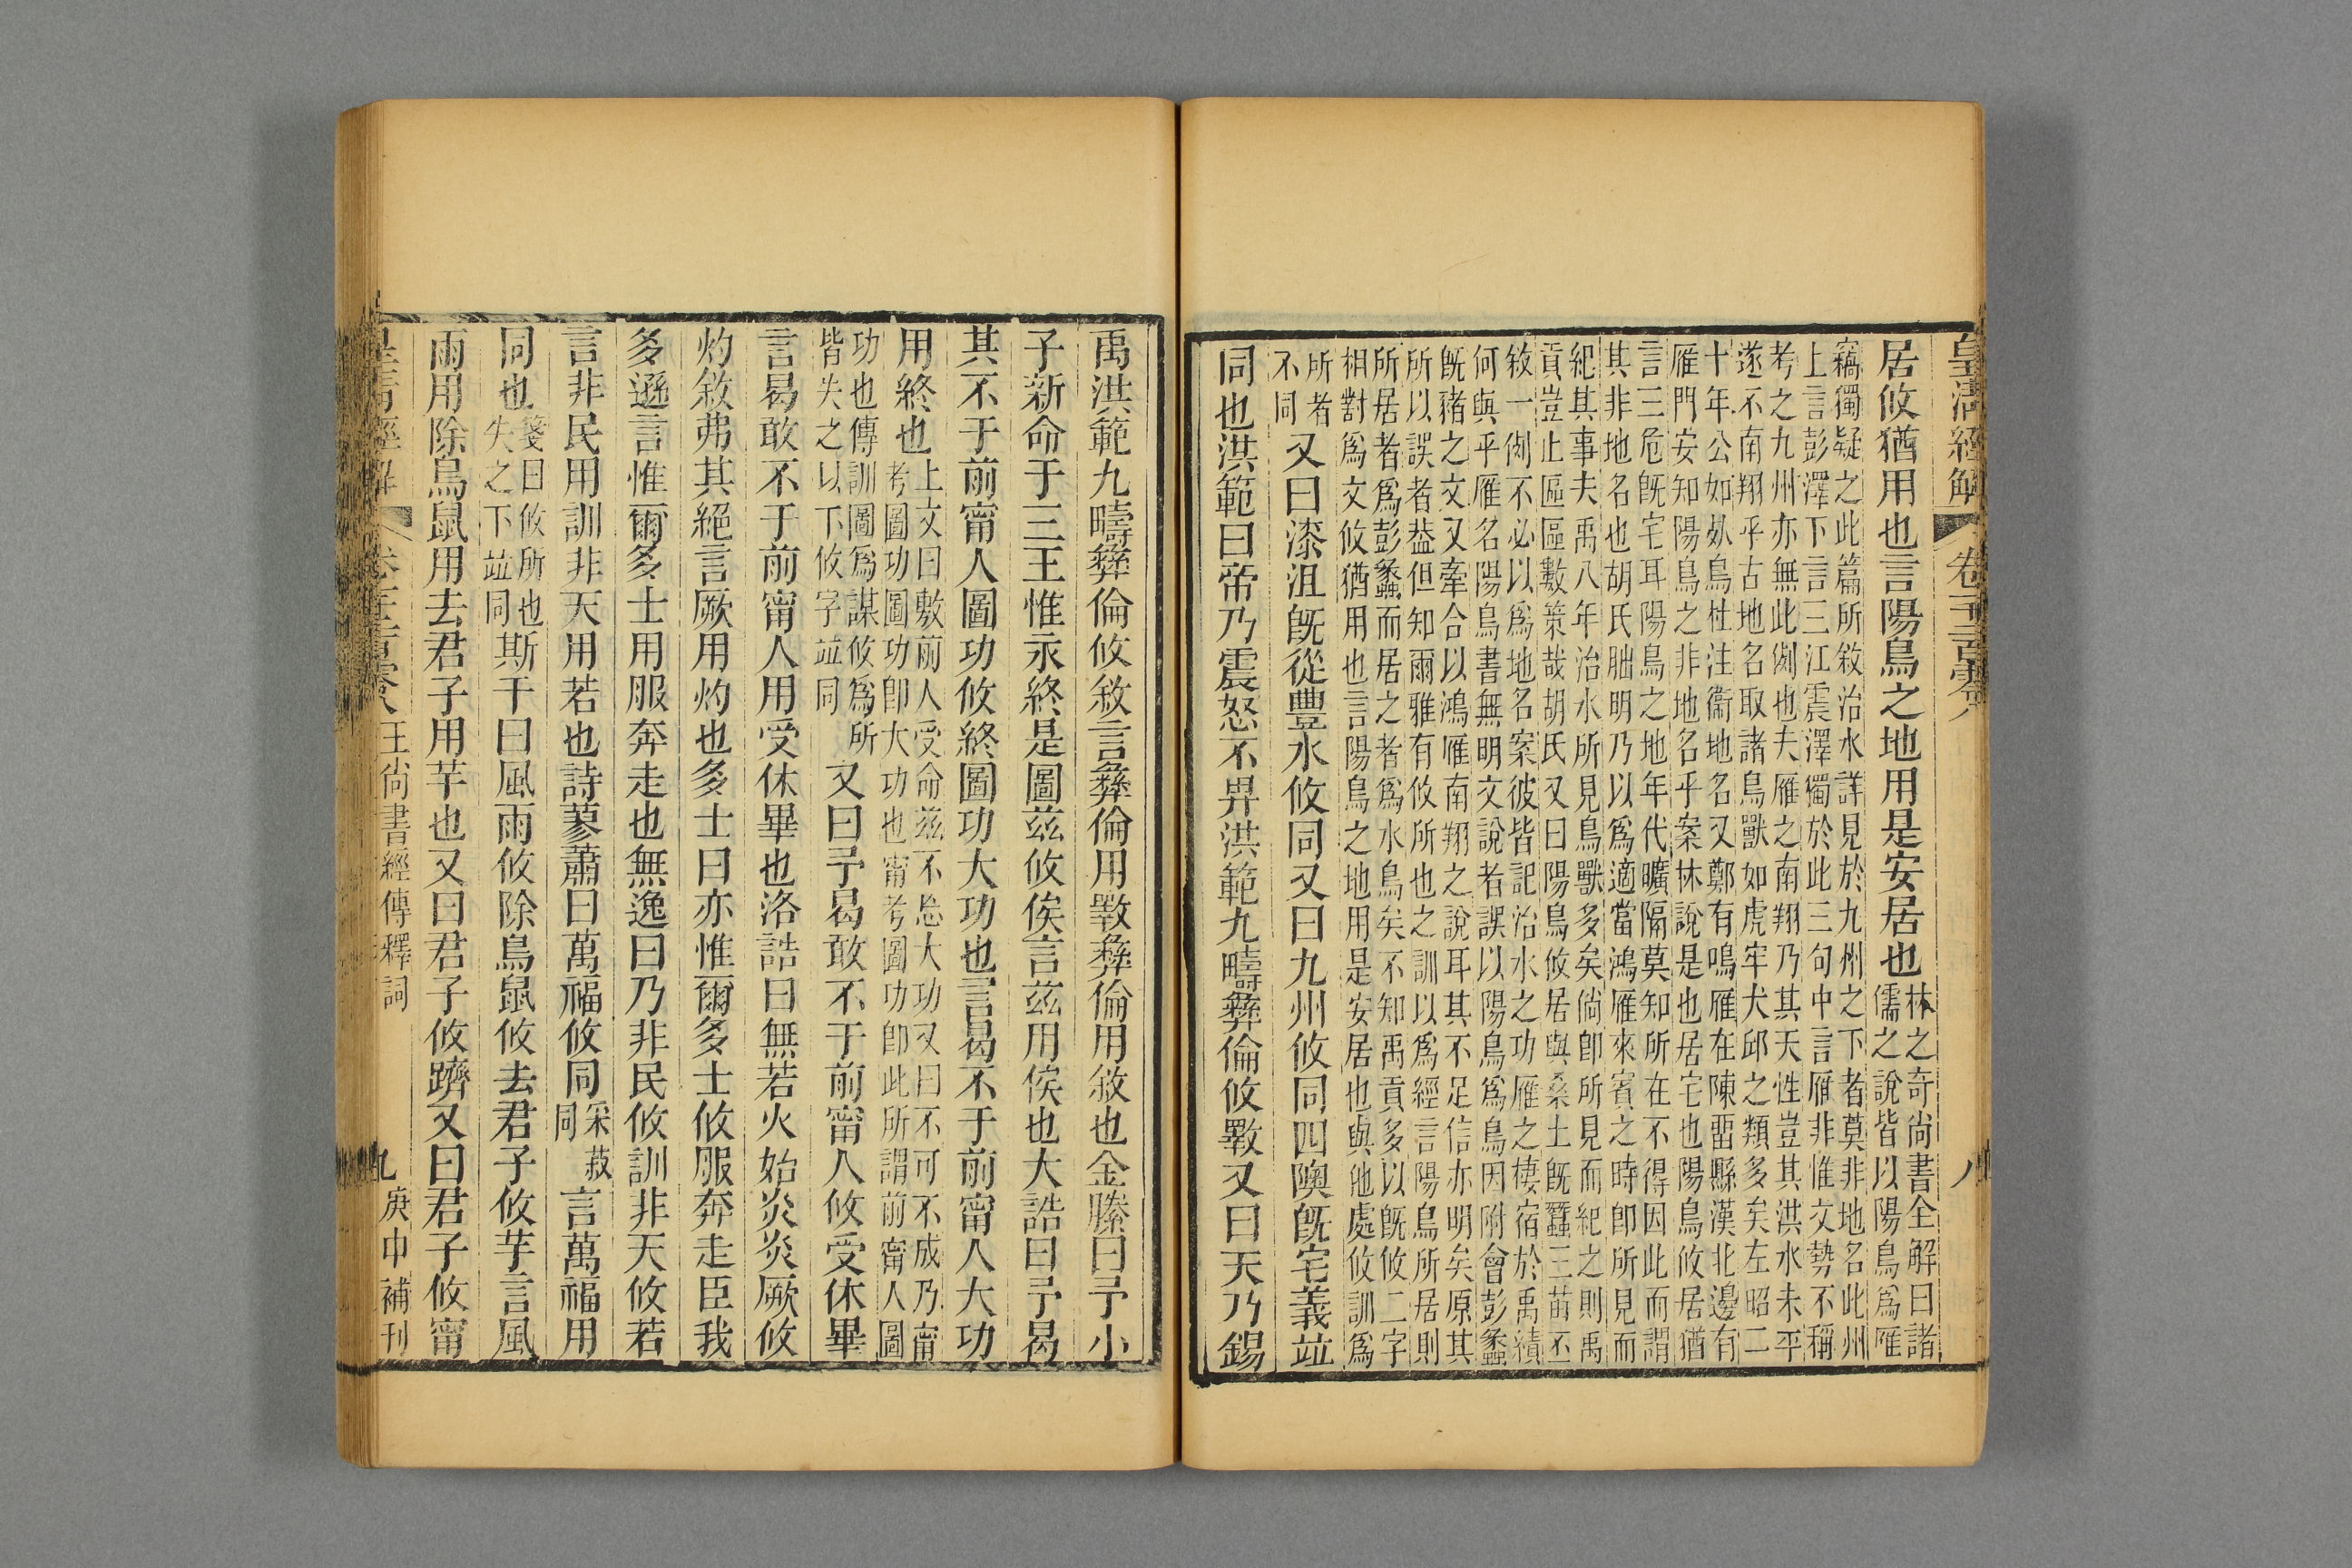 皇清經解 卷千二百零八 八
居攸猶用也言陽鳥之地用是安居也林之奇尚書全解曰諸
儒之說皆以陽鳥爲雁
竊獨疑之此篇所敘治水詳見於九州之下者莫非地名此州
上言彭澤下言三江震澤獨於此三句中言雁非惟文勢不稱
考之九州亦無此例也夫雁之南翔乃其天性豈其洪水未平
遂不南翔乎古地名取諸鳥獸如虎牢犬邱之類多矣左昭二
十年公如死鳥杜注衞地名又鄭有鳴雁在陳畱縣漢北邊有
雁門安知陽鳥之非地名乎案林說是也居宅也陽鳥攸居猶
言三危旣宅耳陽鳥之地年代曠隔莫知所在不得因此而謂
其非地名也胡氏朏明乃以爲適當鴻雁來賓之時卽所見而
紀其事夫禹八年治水所見鳥獸多矣倘卽所見而紀之則禹
貢豈止區區數策哉胡氏又曰陽鳥攸居與桑土旣蠶三苗丕
敘一例不必以爲地名案彼皆記治水之功雁之棲宿於禹績
何與乎雁名陽鳥書無明文說者誤以陽鳥爲鳥因附會彭蠡
旣豬之文又牽合以鴻雁南翔之說耳其不足信亦明矣原其
所以誤者葢但知爾雅有攸所也之訓以爲經言陽鳥所居則
所居者爲彭蠡而居之者爲水鳥矣不知禹貢多以旣攸二字
相對爲文攸猶用也言陽鳥之地用是安居也與他處攸訓爲
所者
不同又曰漆沮旣從豐水攸同又曰九州攸同四隩旣宅義竝
同也洪範曰帝乃震怒不畀洪範九疇彝倫攸斁又曰天乃錫
禹洪範九疇彝倫攸敘言彝倫用斁彝倫用敘也金縢曰予小
子新命于三王惟永終是圖茲攸俟言茲用俟也大誥曰予曷
其不于前甯人圖功攸終圖功大功也言曷不于前甯人大功
用終也上文曰敷前人受命茲不忘大功又曰不可不成乃甯
考圖功圖功卽大功也甯考圖功卽此所謂前甯人圖
功也傳訓圖爲謀攸爲所
皆失之以下攸字竝同又曰予曷敢不于前甯人攸受休畢
言曷敢不于前甯人用受休畢也洛誥曰無若火始炎炎厥攸
灼敘弗其絕言厥用灼也多士曰亦惟爾多士攸服奔走臣我
多遜言惟爾多士用服奔走也無逸曰乃非民攸訓非天攸若
言非民用訓非天用若也詩蓼蕭曰萬福攸同采菽
同言萬福用
同也箋曰攸所也
失之下竝同斯干曰風雨攸除鳥鼠攸去君子攸芋言風
雨用除鳥鼠用去君子用芋也又曰君子攸躋又曰君子攸甯
皇清經解 卷千二百零八 王尚書經傳釋詞 九 庚申補刊